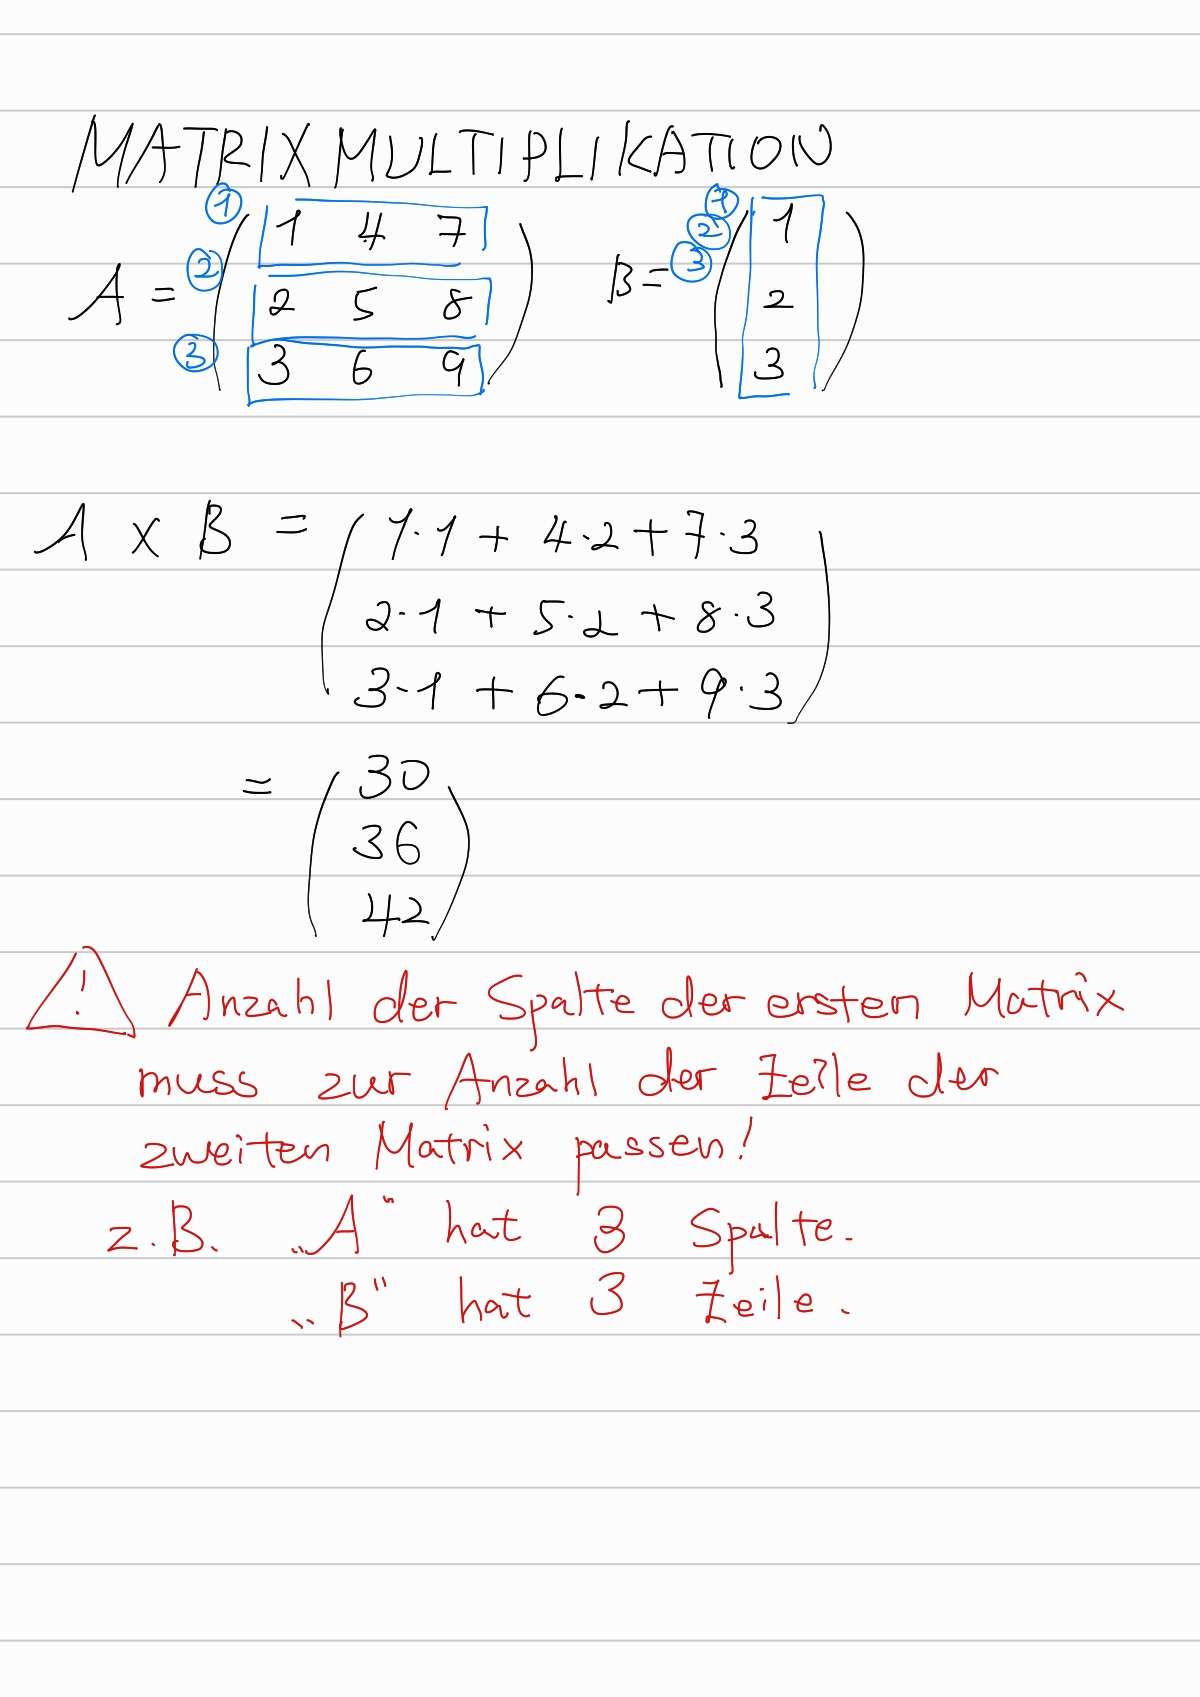 MATRIXMULTIPLIKATION
① ②③
A = ( 1 4 7 ) B = ( 1 )
② 2 5 8 2
③ 3 6 9 3
A x B = ( 1·1 + 4·2 + 7·3
2·1 + 5·2 + 8·3
3·1 + 6·2 + 9·3 )
= ( 30
36
42 )
! Anzahl der Spalte der ersten Matrix
muss zur Anzahl der Zeile der
zweiten Matrix passen!
z.B. „A“ hat 3 Spalte.
„B“ hat 3 Zeile.